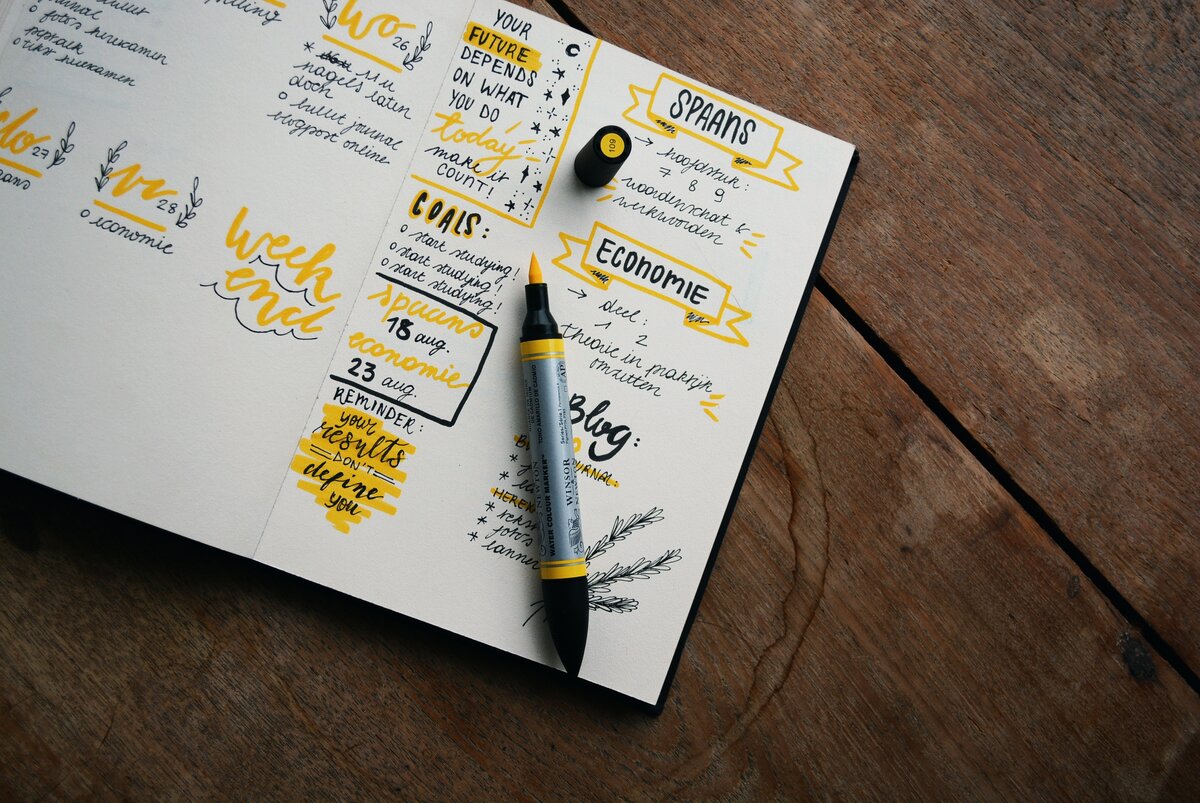 foto's
tekst
Wo
26
11u
nagels laten
doen
o bullet journal
blogpost online
27
vr
28
o economie
week
end
YOUR
FUTURE
DEPENDS
ON WHAT
YOU DO
today
make it
COUNT!
GOALS:
o start studying!
o start studying!
o start studying!
spaans
18 aug.
economie
23 aug.
REMINDER:
your
results
DON'T
define
you
SPAANS
→ hoofdstuk:
7 8 9
woordenschat &
werkwoorden
ECONOMIE
→ deel:
1 2
theorie in praktijk
omzetten
Blog:
JOURNAL:
* tekst
* foto's
109
WINSOR
NEWTON
WATER COLOUR MARKER